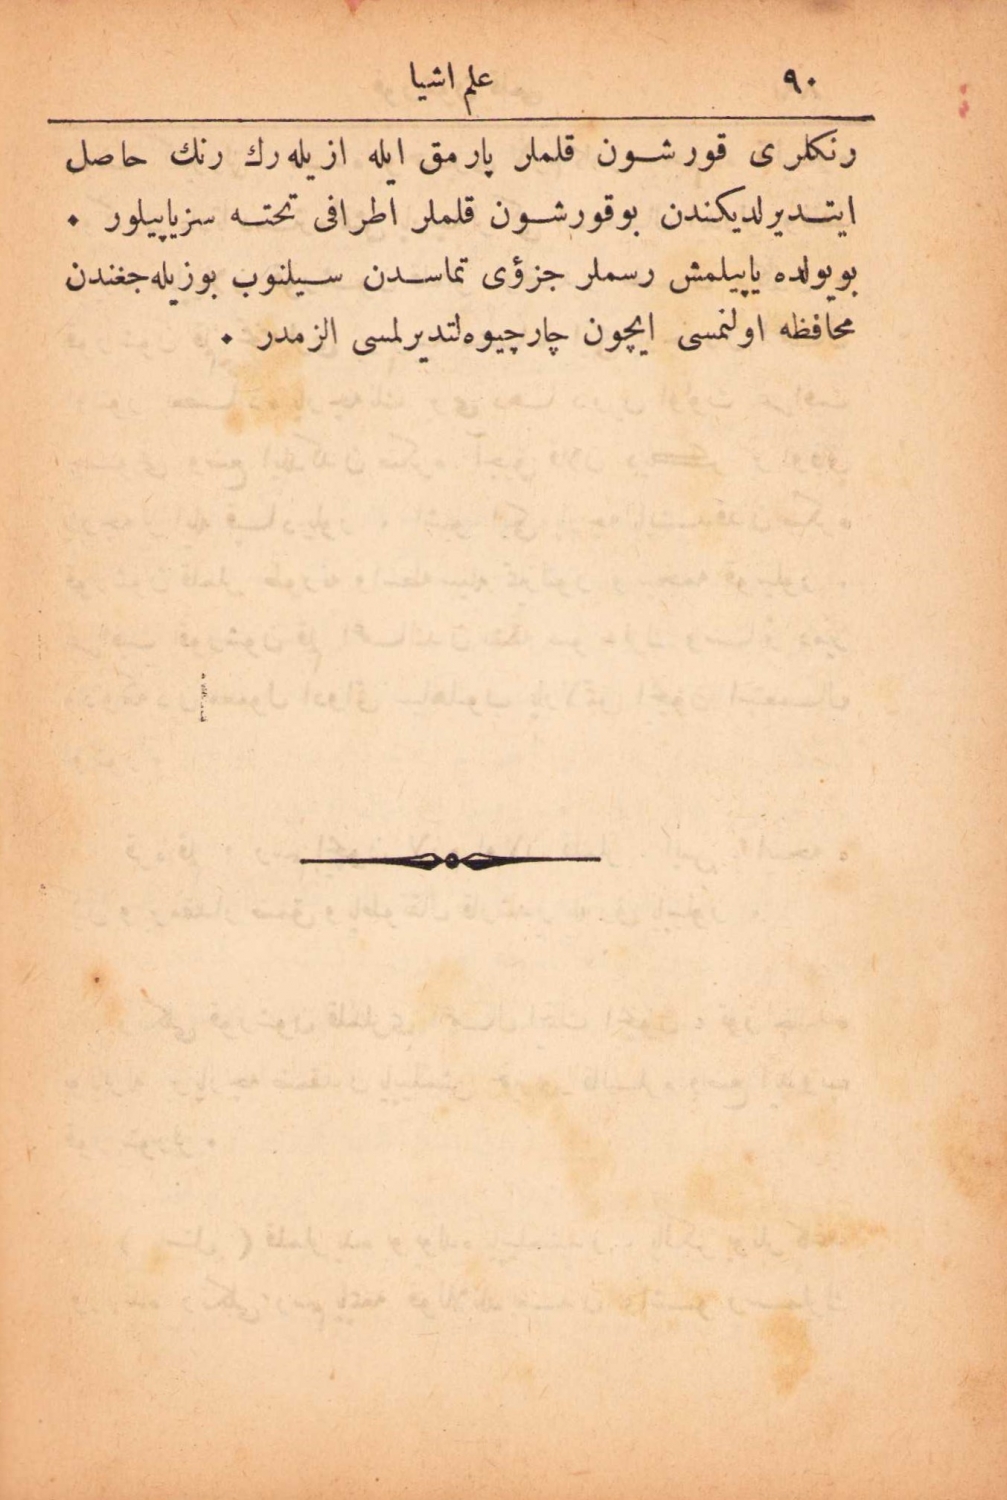 ٩٠ علم اشیا
رنكلری قورشون قلملر پارمق ایله ازیله‌رك رنك حاصل
ایتدیرلدیكندن بوقورشون قلملر اطرافی تخته سزیاپیلور .
بویولده یاپیلمش رسملر جزؤی تماسدن سیلنوب بوزیله‌جغندن
محافظه اولنمسی ایچون چارچیوه‌لتدیرلمسی الزمدر .